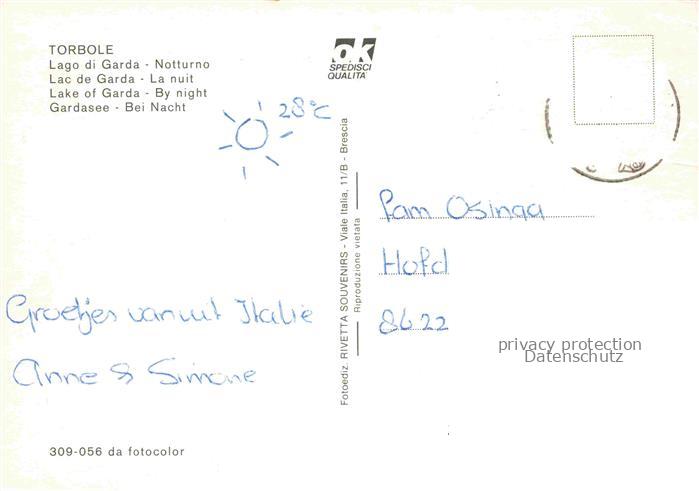 TORBOLE
Lago di Garda - Notturno
Lac de Garda - La nuit
Lake of Garda - By night
Gardasee - Bei Nacht
ok
SPEDISCI
QUALITA'
28°C
Groetjes vanuit Italië
Anne & Simone
309-056 da fotocolor
Fotoediz. RIVETTA SOUVENIRS - Viale Italia, 11/B - Brescia
Riproduzione vietata
Pam Osinga
8622
privacy protection
Datenschutz